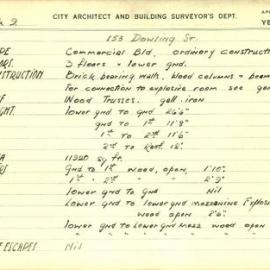 k 2 CITY ARCHITECT AND BUILDING SURVEYOR'S DEPT.
YE
153 Dowling St.
DE Commercial Bld. ordinary construction
RS. 3 floors + lower gnd.
NSTRUCTION Brick bearing walls, Wood columns + beams
For connection to explosive room see
OF Wood Trusses. gal. iron
GHT. lower gnd to gnd
gnd to 1st 11'8"
1st to 2nd 11'6"
2nd to Roof 12'
A 11920 sq ft.
RS Gnd to 1st wood, open, 1'10"
1st " 2nd " " 2'9"
lower gnd to gnd Nil
lower gnd to lower gnd mezzanine
wood open 2'6"
lower gnd to lower gnd Mezz wood open
E ESCAPES Nil